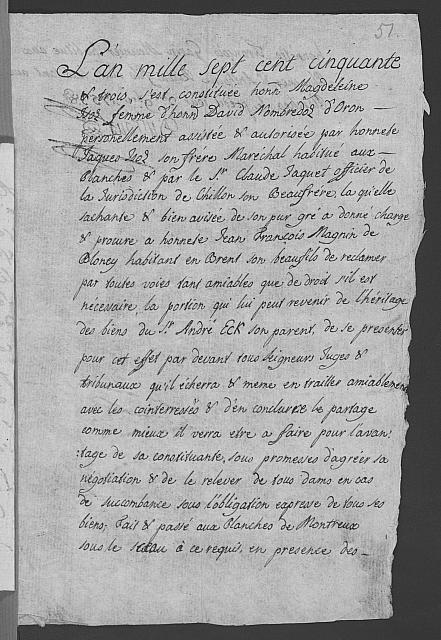 51.
L'an mille sept cent cinquante
& trois s'est constituée honn. Magdeleine
femme d'honn. David Nombredoz d'Oron
personellement assistée & autorisée par honnete
Jaques son frére Maréchal habitué aux
Planches & par le Sr. Claude Jaquet officier de
la Jurisdiction de Chillon son Beaufrére, laq'uelle
sachante & bien avisée de son pur gré a donné charge
& procure a honnete Jean François Magnin de
Bloney habitant en Brent son beaufils de reclamer
par toutes voies tant amiables que de droit s'il est
nécessaire, la portion qui lui peut revenir de l'héritage
des biens du Sr. André Eck son parent, de se presenter
pour cet effet par devant tous Seigneurs Juges &
tribunaux qu'il écherra & meme en traitter amiablement
avec les cointeressés & d'en conclurre le partage
comme mieux il verra etre a faire pour l'avan:
:tage de sa constituante, sous promesses d'agréer sa
négotiation & de le relever de tous dams en cas
de succombance sous l'obligation expresse de tous ses
biens; Fait & passé aux Planches de Montreux
sous le sceau à ce requis, en presence des